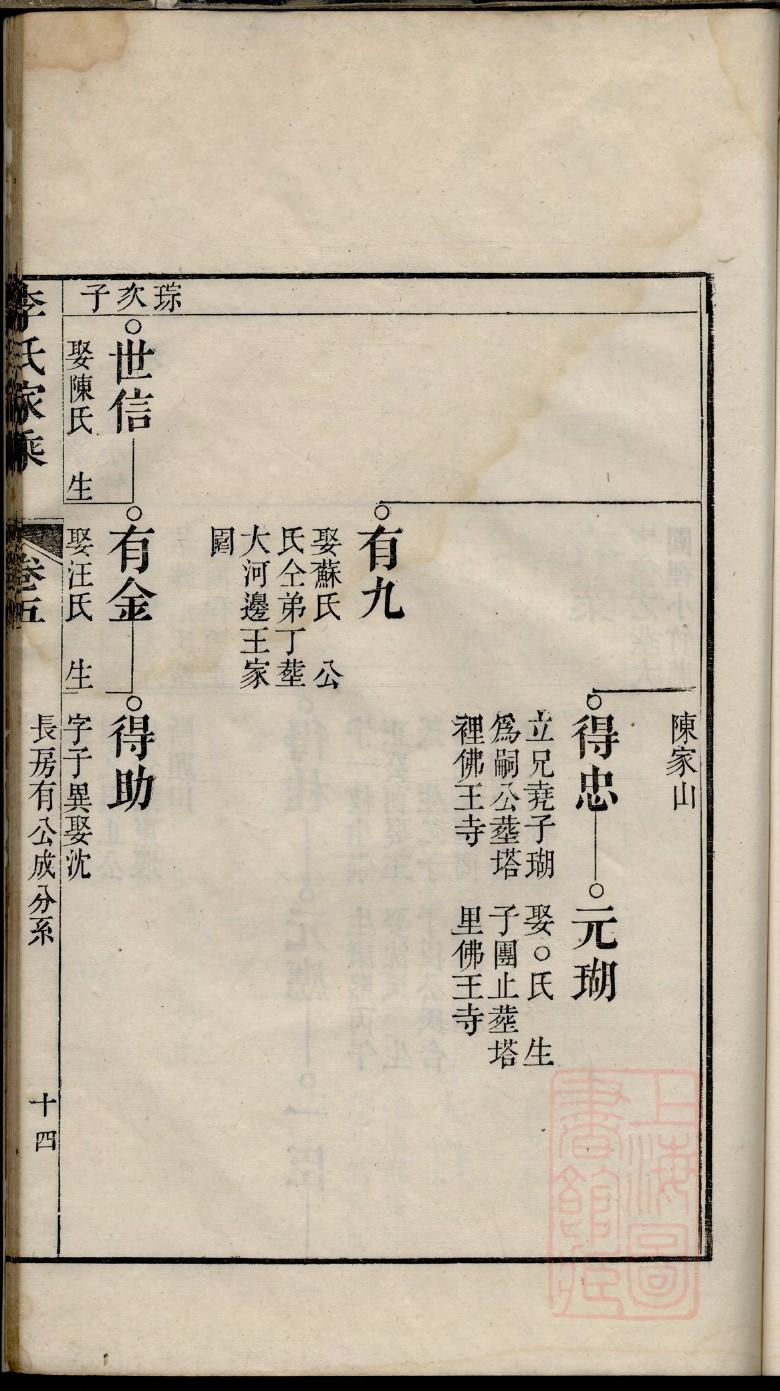 陳家山
得忠
立兄堯子瑚
爲嗣公塟塔
裡佛王寺
元瑚
娶○氏　生
子團止塟塔
里佛王寺
有九
娶蘇氏　公
氏仝弟丁塟
大河邊王家
圍
琮次子
世信
娶陳氏　生
有金
娶汪氏　生
得助
字子異娶沈
李氏家乘
卷五
長房有公成分系
十四
上海圖
書館藏